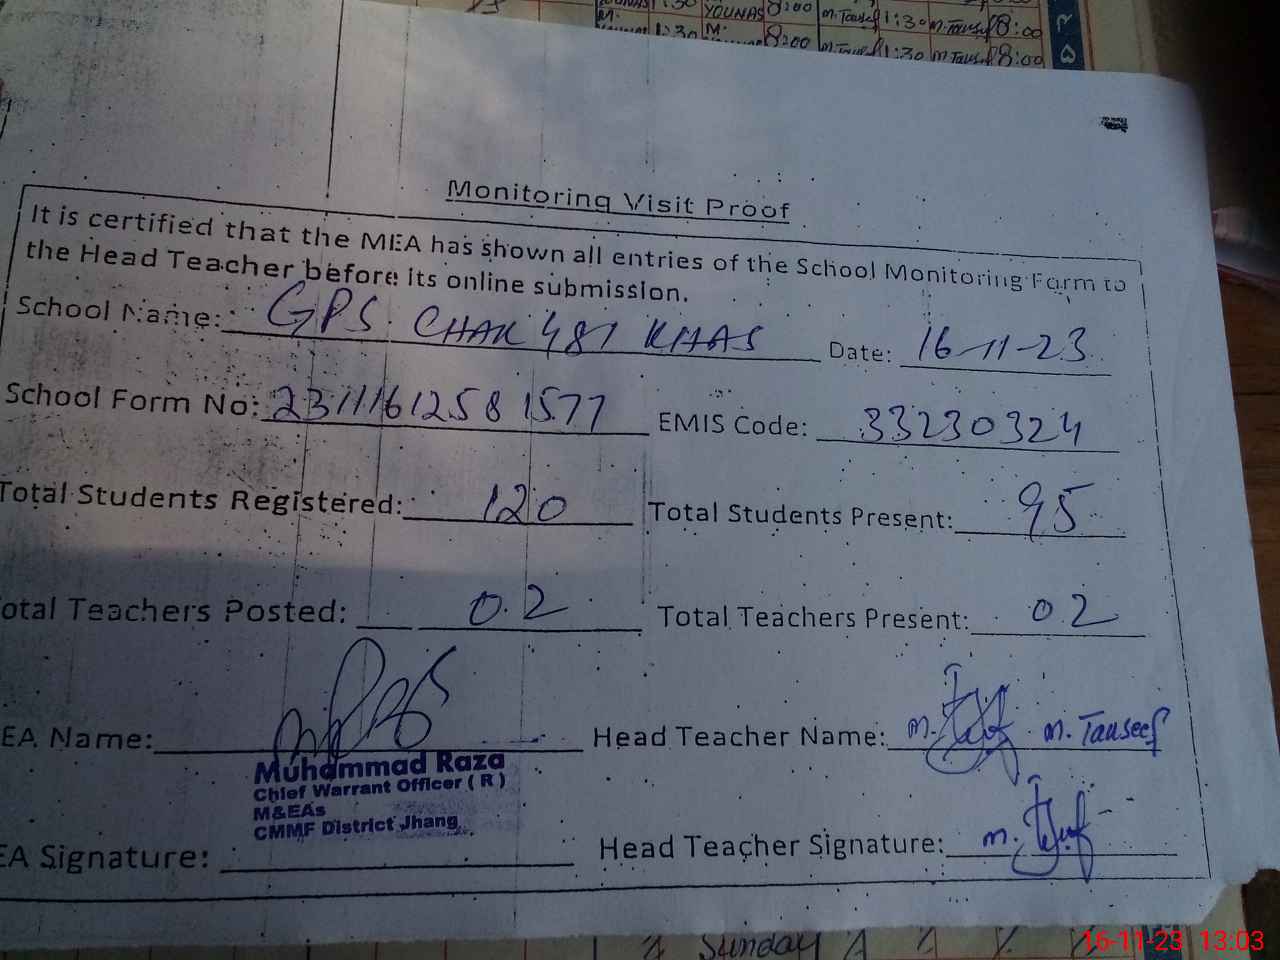 YOUNAS 1:30 YOUNAS 8:00 m.Tausef 1:30 m.Tausef 8:00
M: 1:30 M: 8:00 m.Tausef 1:30 m.Tausef 8:00
Monitoring Visit Proof
It is certified that the MEA has shown all entries of the School Monitoring Form to
the Head Teacher before its online submission.
School Name: GPS CHAK 481 KHAS Date: 16-11-23
School Form No: 23111612581577 EMIS Code: 33230324
Total Students Registered: 120 Total Students Present: 95
otal Teachers Posted: 02 Total Teachers Present: 02
EA Name: Head Teacher Name: m. Tauseef
Muhammad Raza
Chief Warrant Officer ( R )
M&EAs
CMMF District Jhang
EA Signature: Head Teacher Signature:
Sunday
16-11-23 13:03